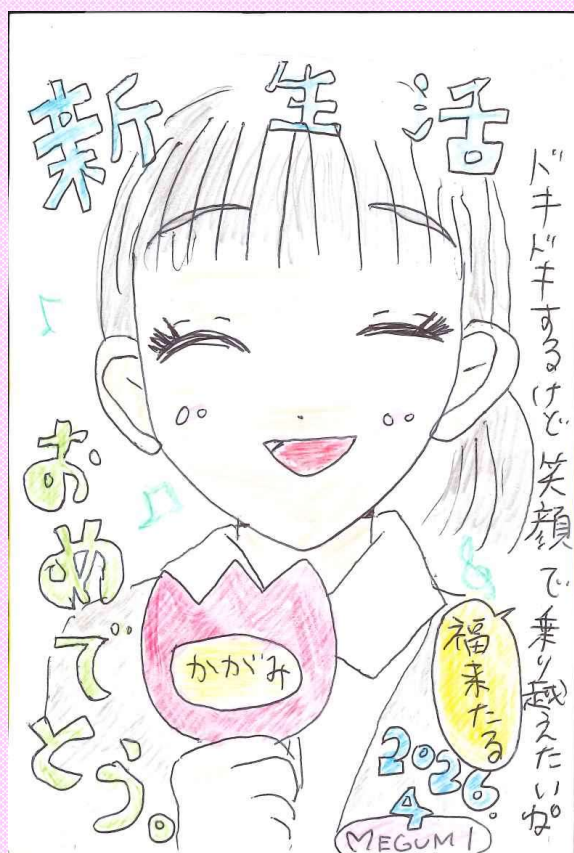 新生活
ドキドキするけど笑顔で乗り越えたいね。
おめでとう。
かがみ
福来たる
2026.
4
MEGUMI